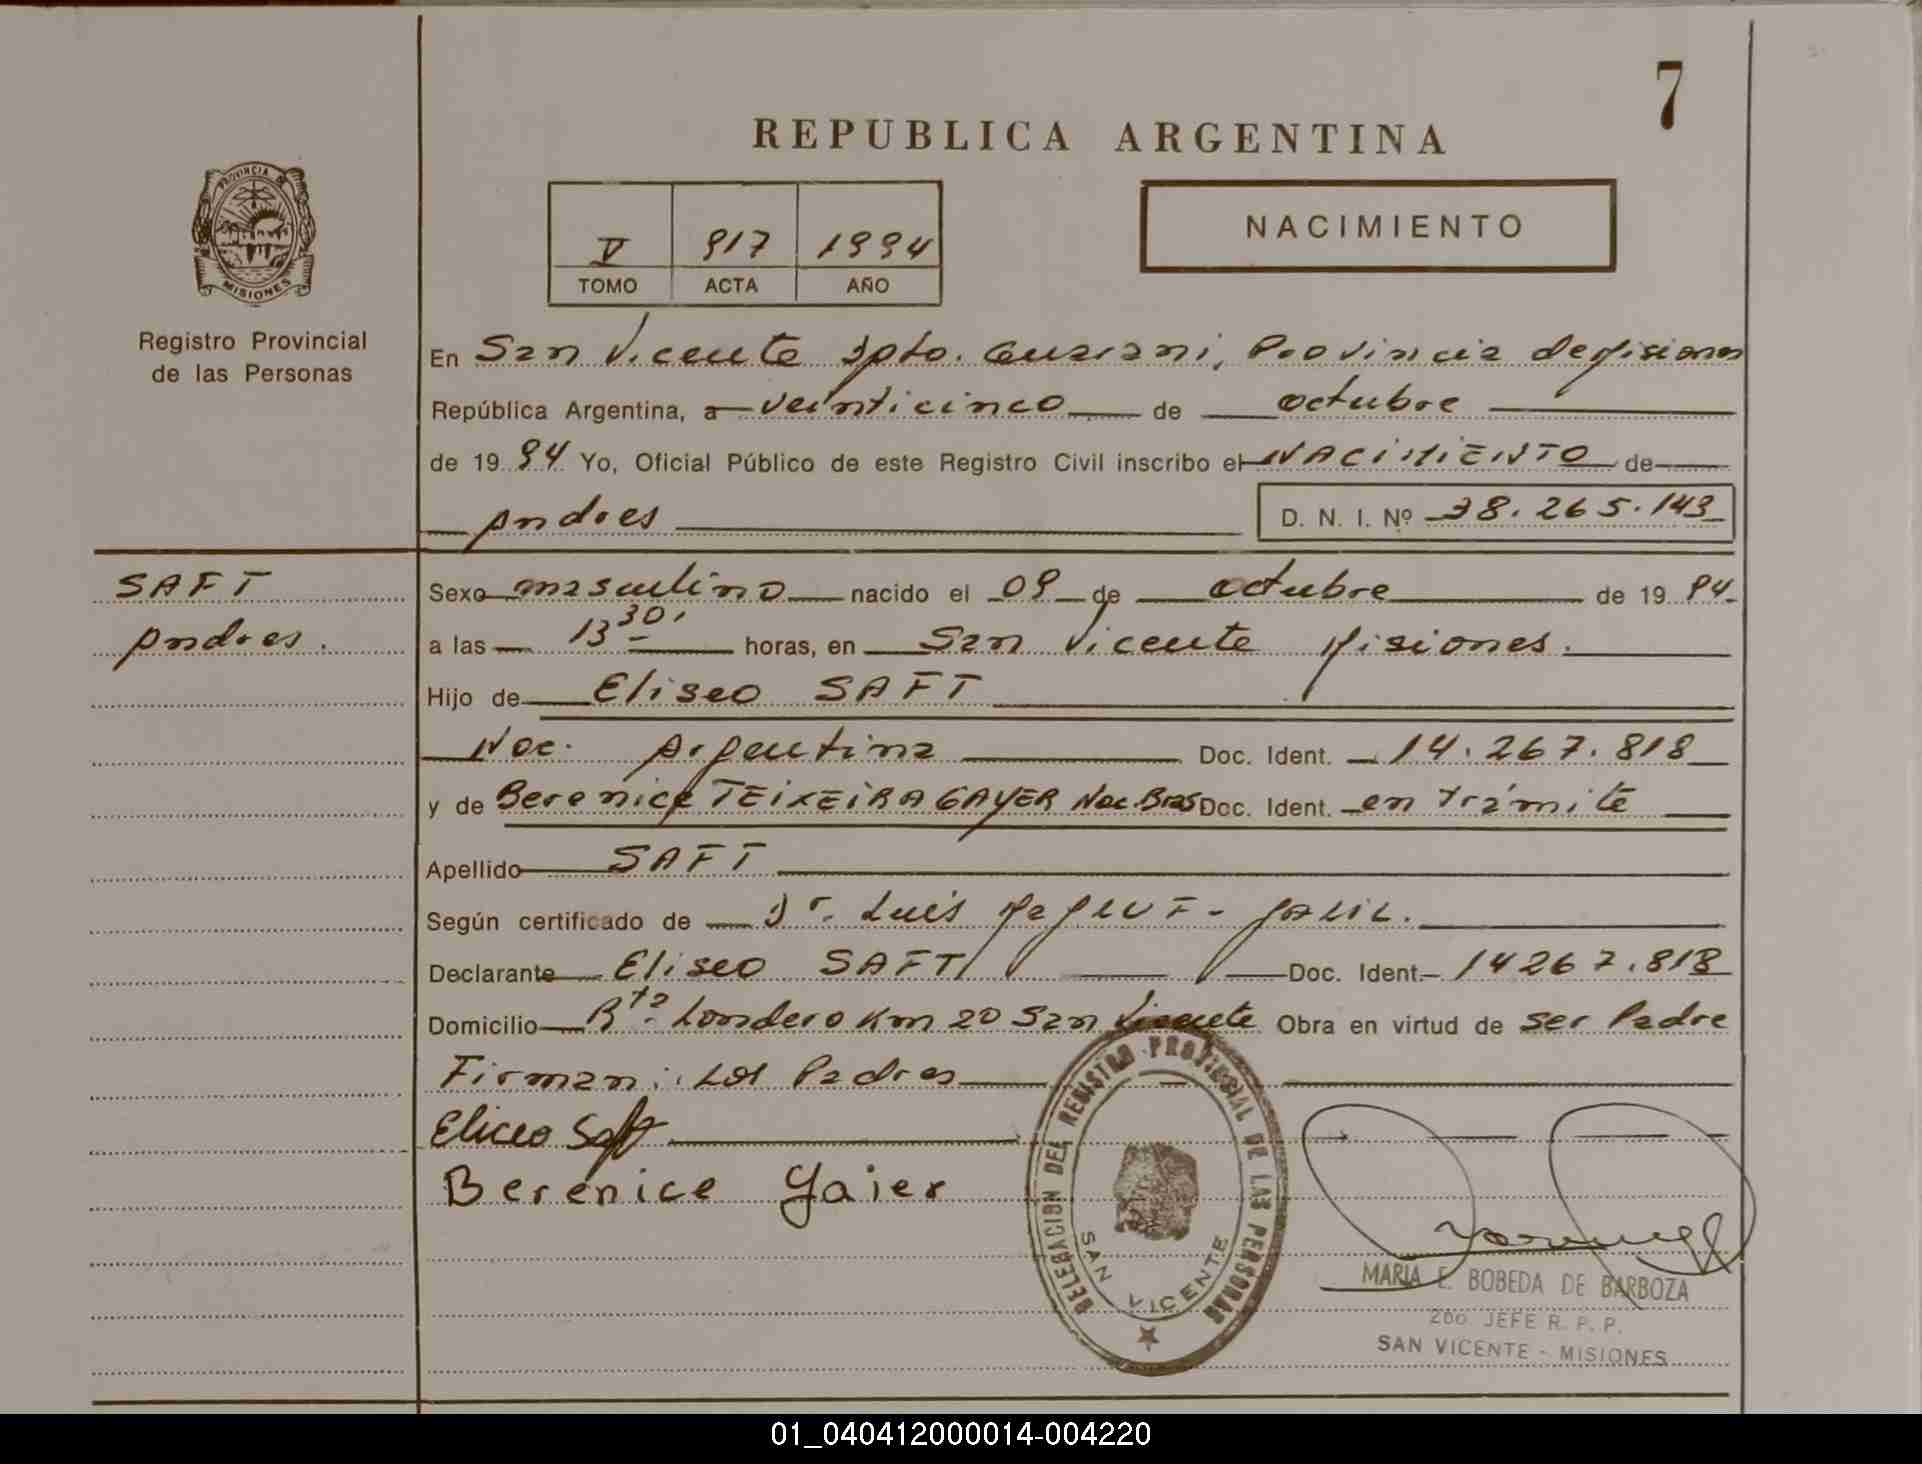 7
REPUBLICA ARGENTINA
PROVINCIA DE
MISIONES
Registro Provincial
de las Personas
V 917 1994
TOMO ACTA AÑO
NACIMIENTO
En San Vicente Dpto. Guarani, Provincia de Misiones
República Argentina, a veinticinco de octubre
de 1994 Yo, Oficial Público de este Registro Civil inscribo el NACIMIENTO de
Andres D. N. I. Nº 38.265.143
SAFT
Andres.
Sexo masculino nacido el 09 de octubre de 1994
a las 13 30' horas, en San Vicente Misiones.
Hijo de Eliseo SAFT
Nac. Argentina Doc. Ident. 14.267.818
y de Berenice TEIXEIRA GAYER Nac. Bras Doc. Ident. en trámite
Apellido SAFT
Según certificado de Dr. Luis
Declarante Eliseo SAFT Doc. Ident. 14267.818
Domicilio Rta. Londero Km 20 San Vicente Obra en virtud de ser Padre
Firman: Los Padres
Eliceo Saft
Berenice Gaier
DELEGACION DEL REGISTRO PROVINCIAL DE LAS PERSONAS
SAN VICENTE
MARIA E. BOBEDA DE BARBOZA
2do. JEFE R. P. P.
SAN VICENTE - MISIONES
01_040412000014-004220